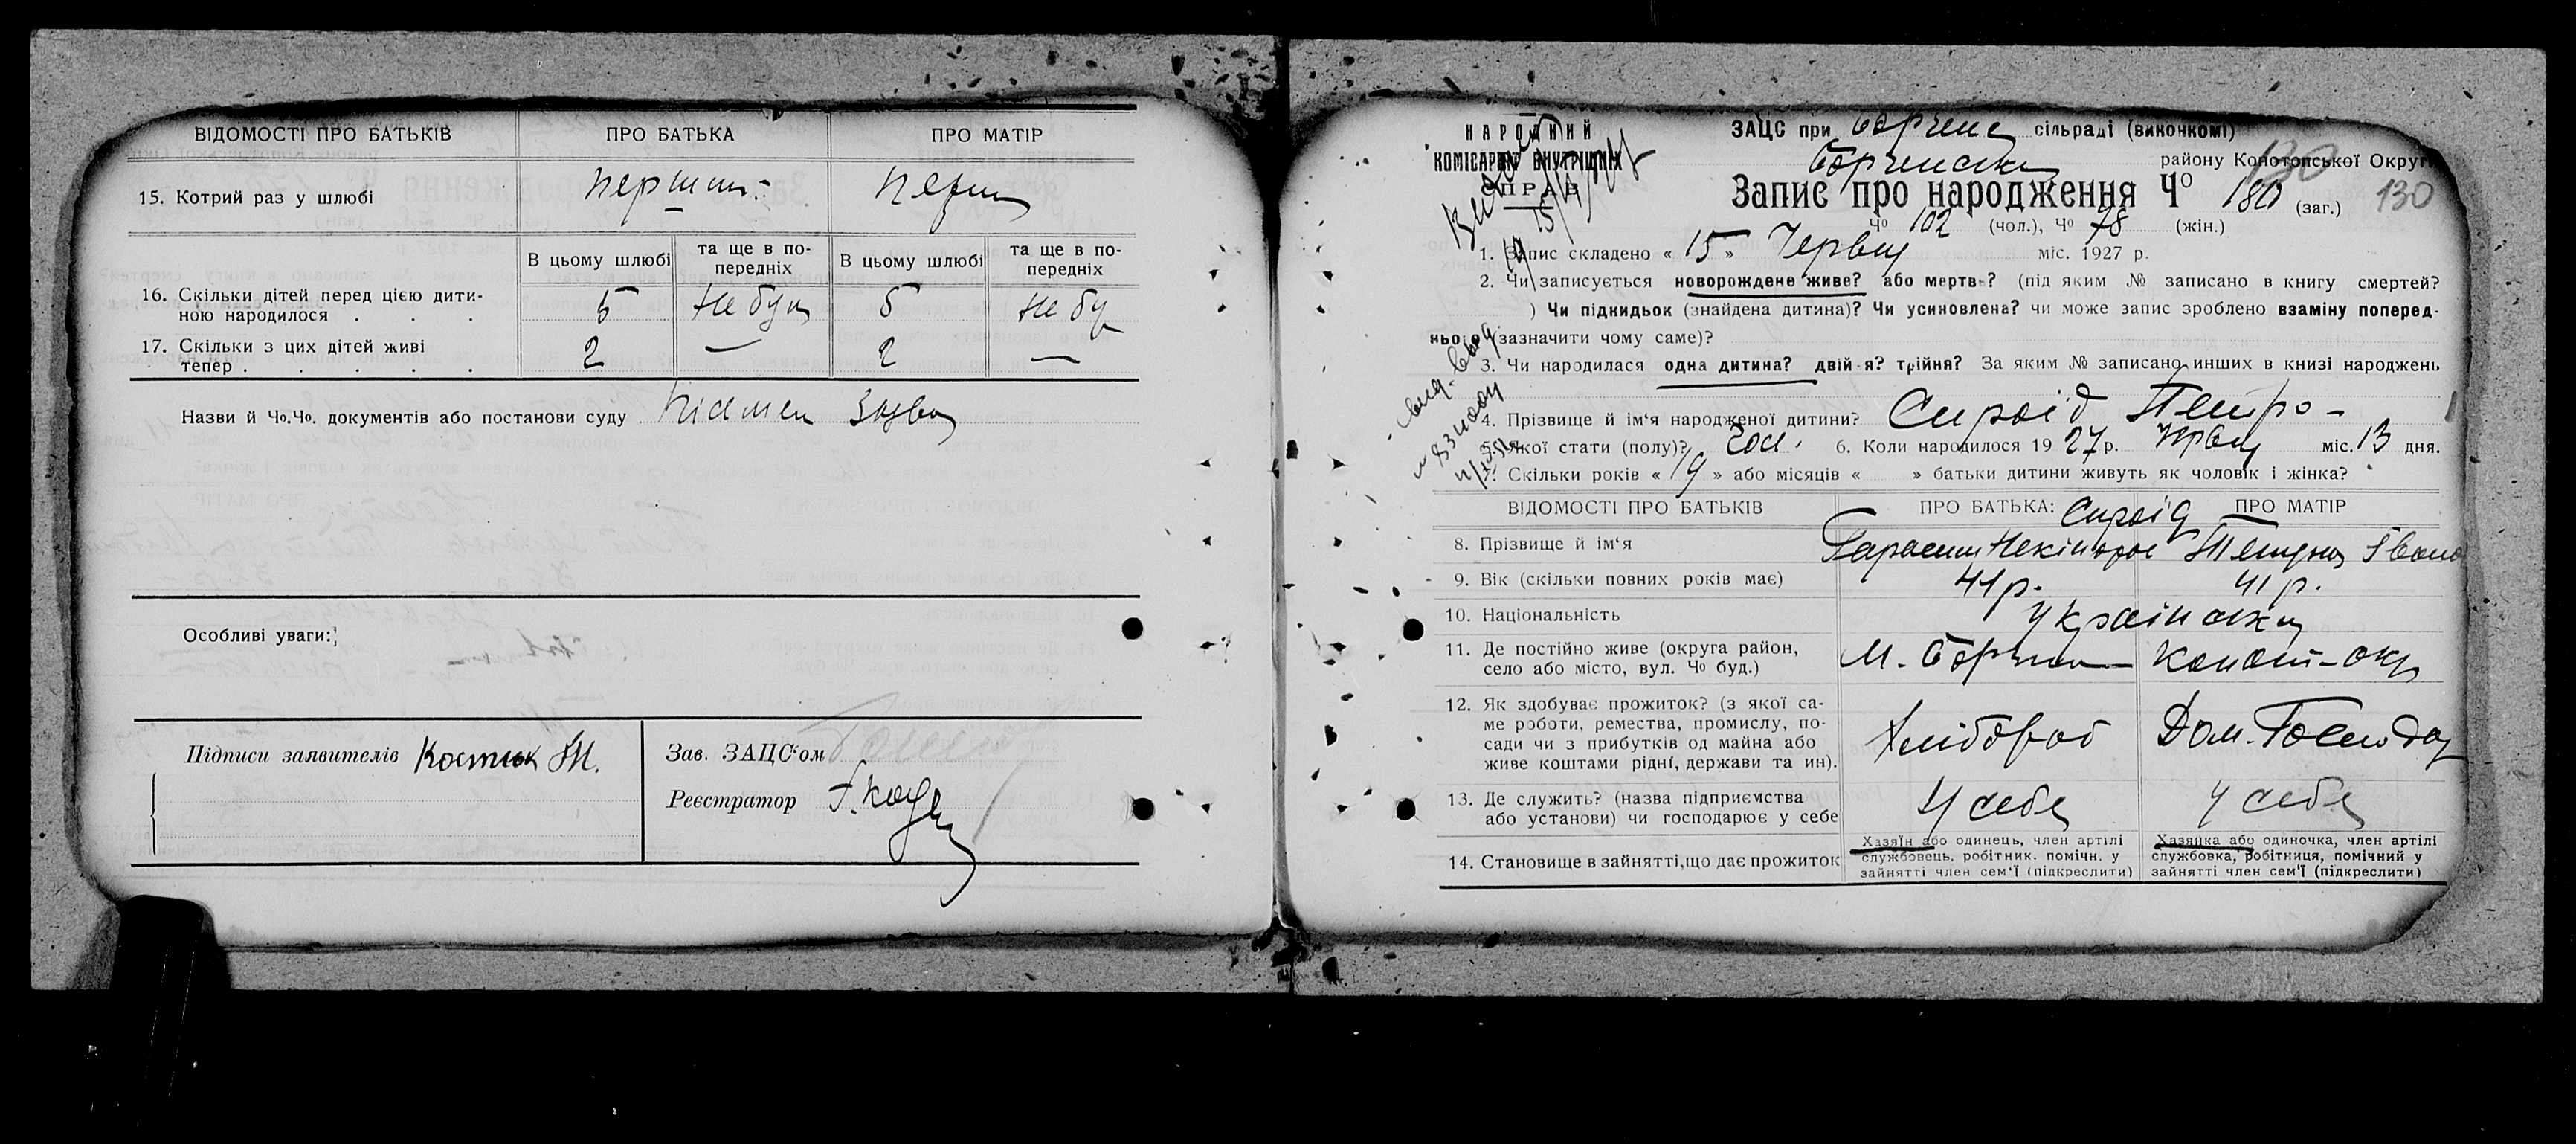 ВІДОМОСТІ ПРО БАТЬКІВ ПРО БАТЬКА ПРО МАТІР
15. Котрий раз у шлюбі перший перш
В цьому шлюбі та ще в по-передніх В цьому шлюбі та ще в по-передніх
16. Скільки дітей перед цією дити-
ною народилося . . . 5 не був 5 не бу
17. Скільки з цих дітей живі
тепер . . . . . 2 — 2 —
Назви й Чо.Чо. документів або постанови суду
Особливі уваги:
Підписи заявителів Костюк
Зав. ЗАЦС'ом
Реєстратор
НАРОДНИЙ
КОМІСАРІЯТ ВНУТРІШНІХ
СПРАВ
ЗАЦС при Борзенс сільраді (виконкомі)
Борзенськ району Конотопської Округи
130
Запис про народження Чо 180 (заг.) 130
Чо 102 (чол.), Чо 78 (жін.)
1. Запис складено « 15 » Червня міс. 1927 р.
2. Чи записується новорождене живе? або мертве? (під яким № записано в книгу смертей?
) Чи підкидьок (знайдена дитина)? Чи усиновлена? чи може запис зроблено взаміну поперед-
нього (зазначити чому саме)?
3. Чи народилася одна дитина? двійня? трійня? За яким № записано инших в книзі народжень
4. Прізвище й ім'я народженої дитини? Сироїд Петро -
5. Якої стати (полу)? чол. 6. Коли народилося 1927 р. Червн міс. 13 дня.
7. Скільки років « 19 » або місяців « » батьки дитини живуть як чоловік і жінка?
ВІДОМОСТІ ПРО БАТЬКІВ ПРО БАТЬКА: Сироїд ПРО МАТІР
8. Прізвище й ім'я Гарасим Некіпоров
9. Вік (скільки повних років має) 41 р. 41 р.
10. Національність українська
11. Де постійно живе (округа район,
село або місто, вул. Чо буд.) М. Борзна — Конот-окр
12. Як здобуває прожиток? (з якої са-
ме роботи, ремества, промислу, по-
сади чи з прибутків од майна або
живе коштами рідні, держави та ин). Хлібороб Дом. Господар
13. Де служить? (назва підприємства
або установи) чи господарює у себе У себе У себе
14. Становище в зайнятті, що дає прожиток
Хазяїн або одинець, член артілі
службовець, робітник. помічн. у
зайнятті член сем'ї (підкреслити)
Хазяйка або одиночка, член артілі
службовка, робітниця, помічний у
зайнятті член сем'ї (підкреслити)